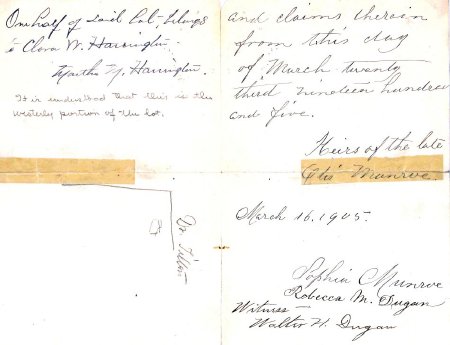 One half of said Lot, belongs
to Clara W. Harrington.
Martha N. Harrington.
It is understood that this is the
westerly portion of the lot.
Dr. Tilton
and claims therein
from this day
of March twenty
third nineteen hundred
and five.
Heirs of the late
Otis Munroe.
March 16, 1905.
Sophia Munroe
Rebecca M. Dugan
Witness
Walter H. Dugan